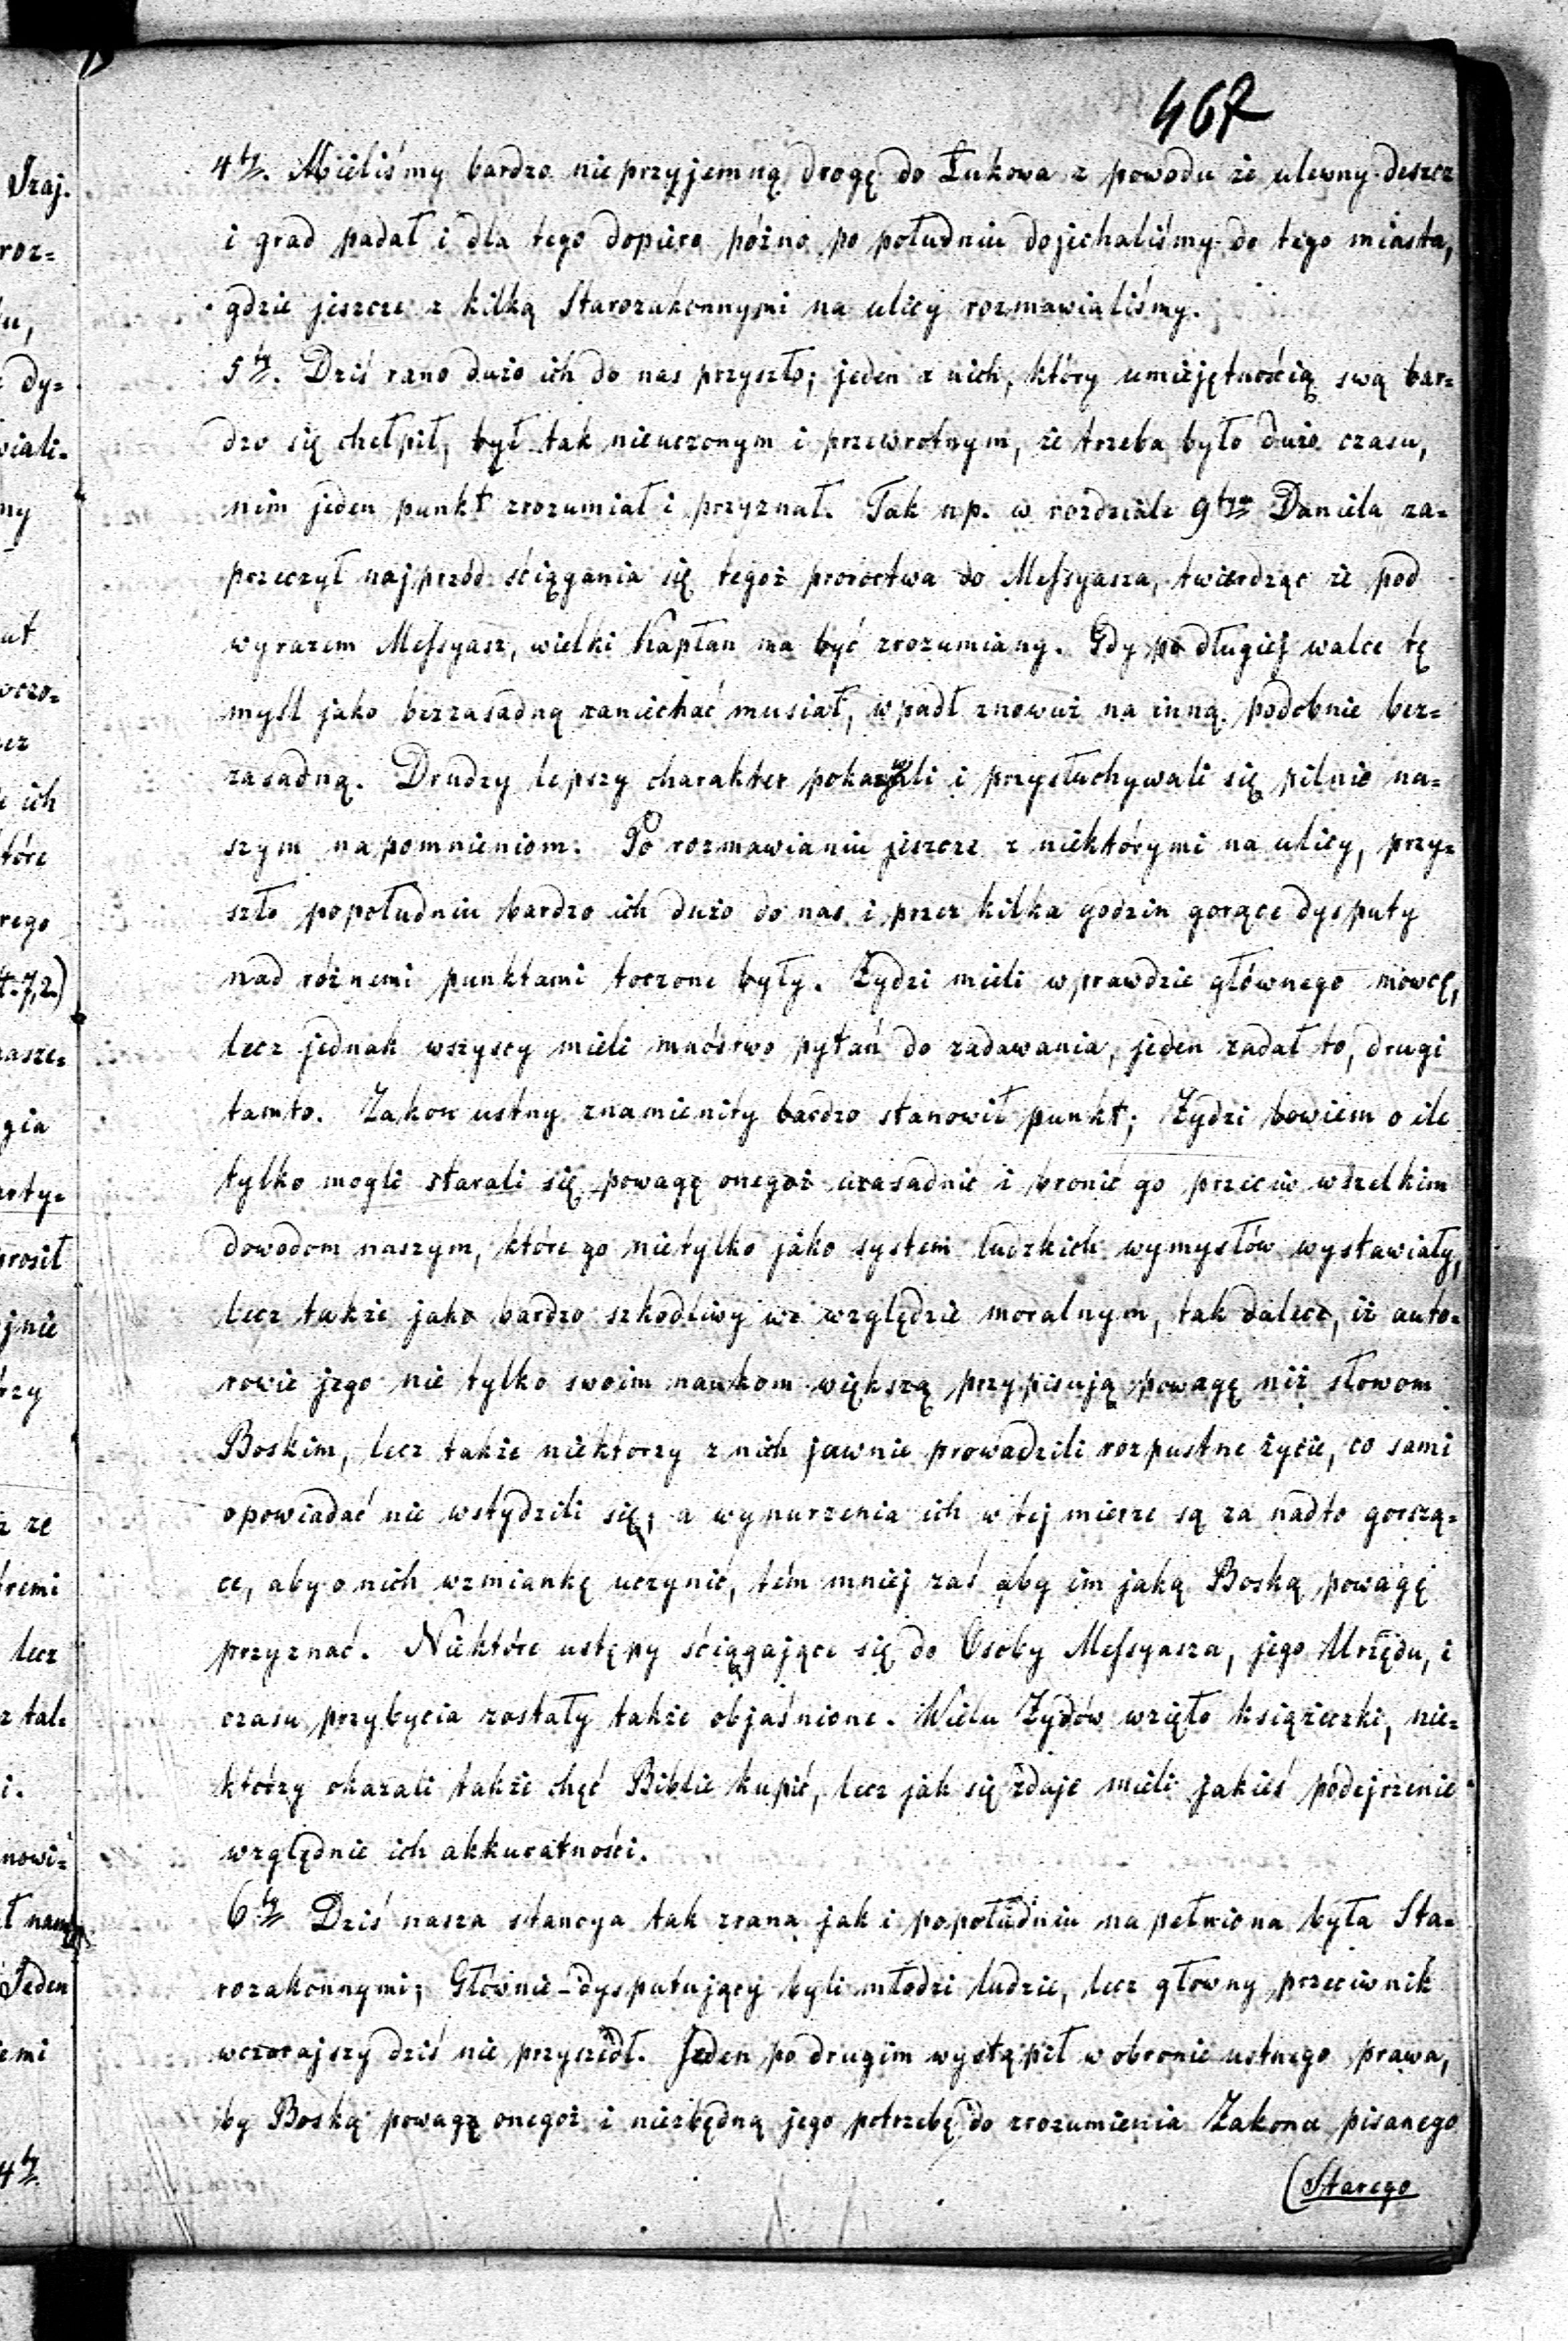 467
4ty. Mieliśmy bardzo nieprzyjemną drogę do Łukowa z powodu że ulewny deszcz
i grad padał i dla tego dopiero późno po południu dojechaliśmy do tego miasta,
gdzie jeszcze z kilką Starozakonnymi na ulicy rozmawialiśmy.
5ty. Dziś rano dużo ich do nas przyszło; jeden z nich, który umiejętnością swą bar=
dzo się chełpił, był tak nieuczonym i przewrotnym, że trzeba było dużo czasu,
nim jeden punkt zrozumiał i przyznał. Tak np. w rozdziale 9tym Daniela za=
przeczył najprzód ściągania się tegoż proroctwa do Messyasza, twierdząc że pod
wyrazem Messyasz, wielki Kapłan ma być zrozumiany. Gdy po długiej walce tę
myśl jako bezzasadną zaniechać musiał, wpadł znowuż na inną podobnie bez=
zasadną. Drudzy lepszy charakter pokazali i przysłuchywali się pilnie na=
szym napomnieniom. Po rozmawianiu jeszcze z niektórymi na ulicy, przy=
szło popołudniu bardzo ich dużo do nas i przez kilka godzin gorące dysputy
nad różnemi punktami toczone były. Żydzi mieli wprawdzie głównego mowcę,
lecz jednak wszyscy mieli mnóstwo pytań do zadawania, jeden zadał to, drugi
tamto. Zakon ustny znamienity bardzo stanowił punkt; Żydzi bowiem o ile
tylko mogli starali się powagę onegoż uzasadnić i bronić go przeciw wszelkim
dowodom naszym, które go nietylko jako system ludzkich wymysłów wystawiały,
lecz także jako bardzo szkodliwy we względzie moralnym, tak dalece, iż auto=
rowie jego nie tylko swoim naukom większą przypisują powagę niż słowom
Boskim, lecz także niektorzy z nich jawnie prowadzili rozpustne życie, co sami
opowiadać nie wstydzili się, a wynurzenia ich w tej mierze są za nadto gorszą=
ce, aby o nich wzmiankę uczynić, tém mniej zaś aby im jaką Boską powagę
przyznać. Niektóre ustępy ściągające się do Osoby Messyasza, jego Urzędu, i
czasu przybycia zostały także objaśnione. Wielu Żydów wzięło książeczki, nie=
którzy okazali także chęć Biblie kupić, lecz jak się zdaje mieli jakieś podejrzenie
względnie ich akkuratności.
6ty Dziś nasza stancya tak zrana jak i popołudniu napełniona była Sta=
rozakonnymi; Głównie-dysputujący byli młodzi ludzie, lecz głowny przeciwnik
wczorajszy dziś nie przyszedł. Jeden po drugim wystąpił w obronie ustnego prawa,
by Boską powagę onegoż i niezbędną jego potrzebę do zrozumienia Zakonu pisanego
(Starego